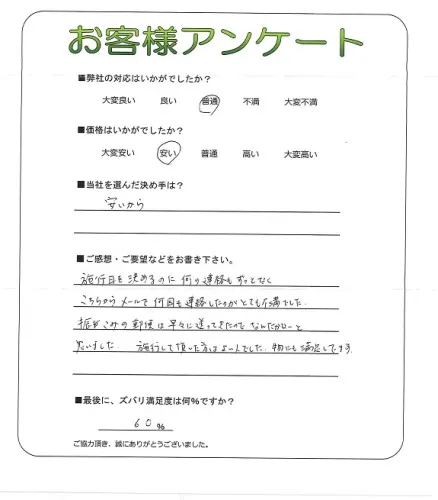 お客様アンケート
■弊社の対応はいかがでしたか?
大変良い 良い 普通 不満 大変不満
■価格はいかがでしたか?
大変安い 安い 普通 高い 大変高い
■当社を選んだ決め手は?
安いから
■ご感想・ご要望などをお書き下さい。
施行日を決めるのに何の連絡もずっとなく
こちらからメールで何回も連絡したのがとても不満でした。
振がこみの郵便は早々に送ってきたのでなんだかなーと
思いました。 施行して頂いた方はよい人でした。 物にも満足してます。
■最後に、ズバリ満足度は何%ですか?
60%
ご協力頂き、誠にありがとうございました。